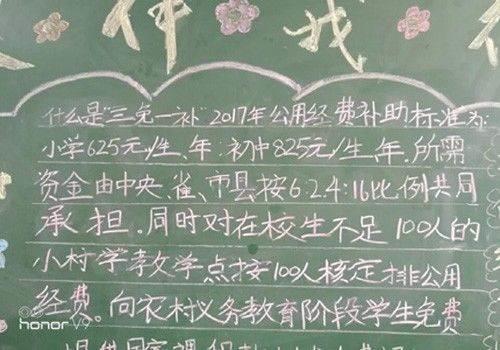 伴我
什么是"三免一补"2017年公用经费补助标准为:
小学625元/生、年:初中825元/生、年.所需
资金由中央、雀、市县按6:2.4:16比例共同
承担.同时对在校生不足100人的
小村学教学点按100人核定排公用
经费.向农村义务教育阶段学生免费
提供国家课程
honor V9